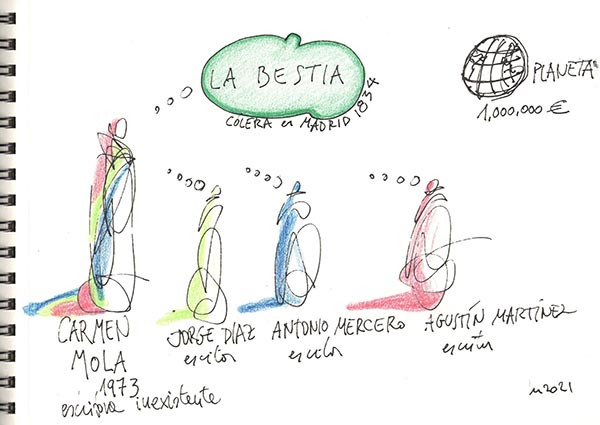 LA BESTIA
COLERA en MADRID 1834
PLANETA
1,000,000 €
CARMEN
MOLA
1973
escritora inexistente
JORGE DÍAZ
escritor
ANTONIO MERCERO
escritor
AGUSTÍN MARTÍNEZ
escritor
2021